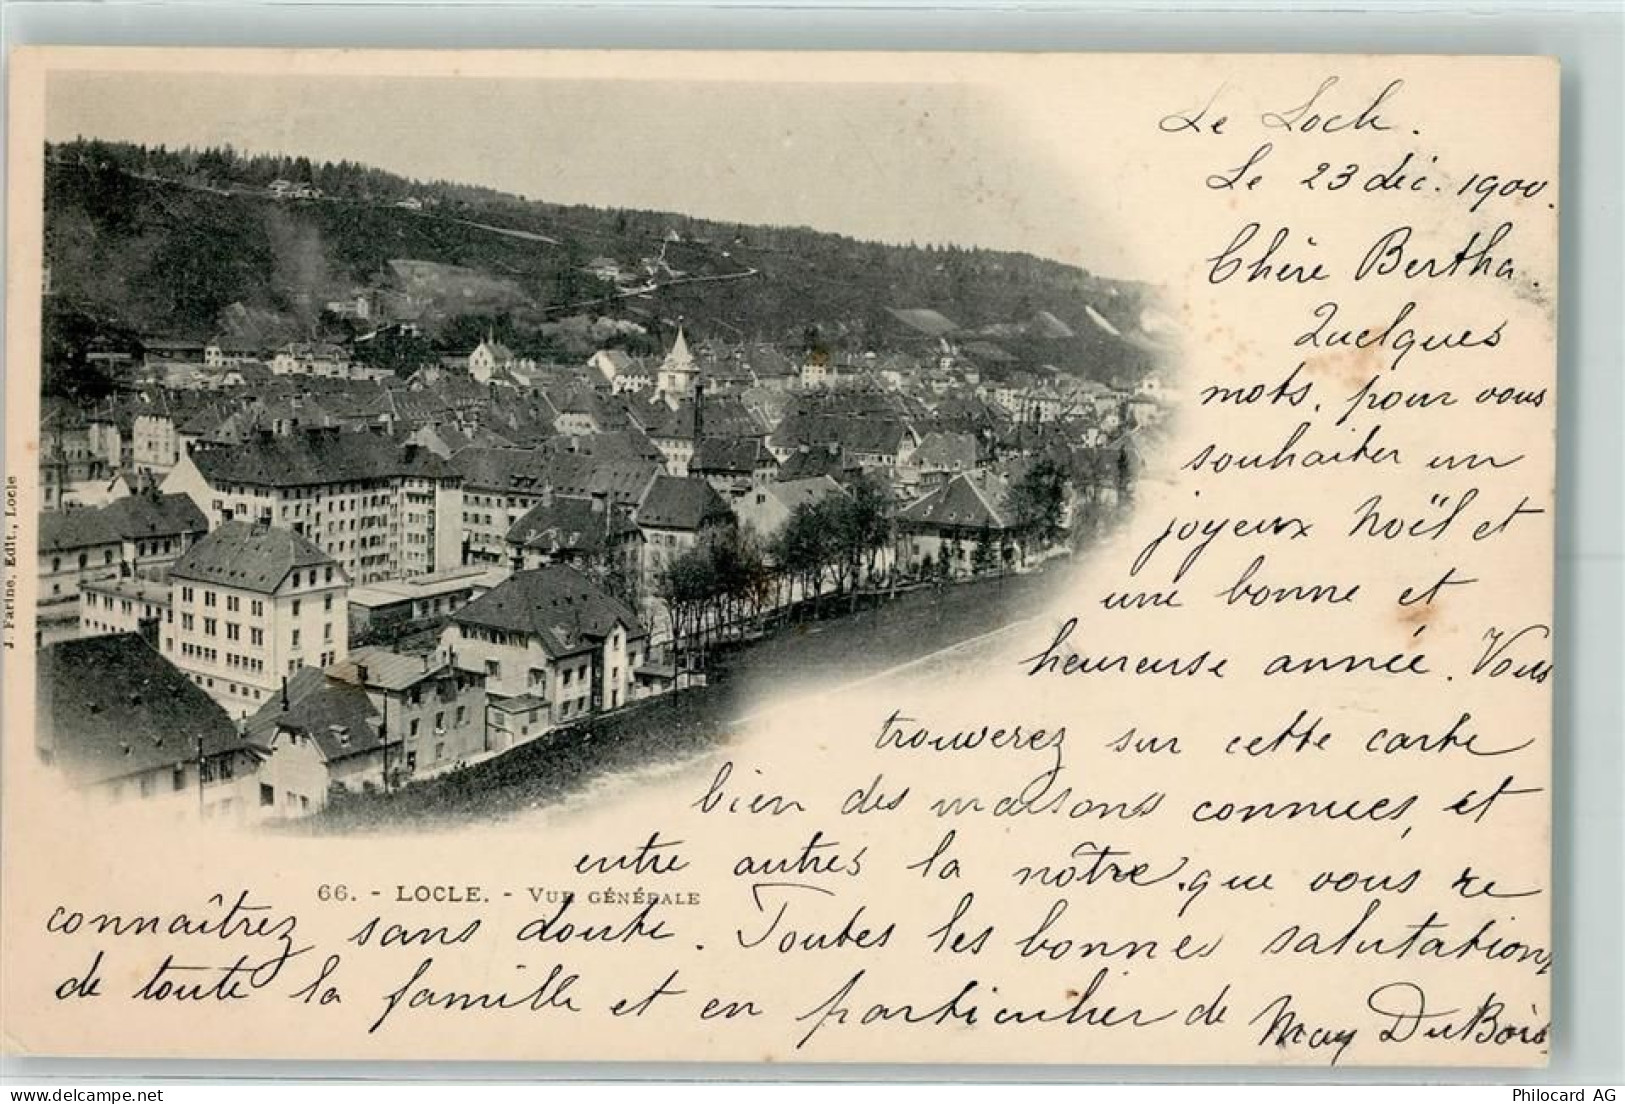 Le Locle.
Le 23 déc. 1900.
Chère Bertha.
Quelques
mots, pour vous
souhaiter un
joyeux Noël et
une bonne et
heureuse année. Vous
trouverez sur cette carte
bien des maisons connues, et
entre autres la nôtre, que vous re
connaîtrez sans doute. Toutes les bonnes salutations
de toute la famille et en particulier de May DuBois
66. - LOCLE. - VUE GÉNÉRALE
J. Farine, Edit., Locle
Philocard AG
delcampe.net